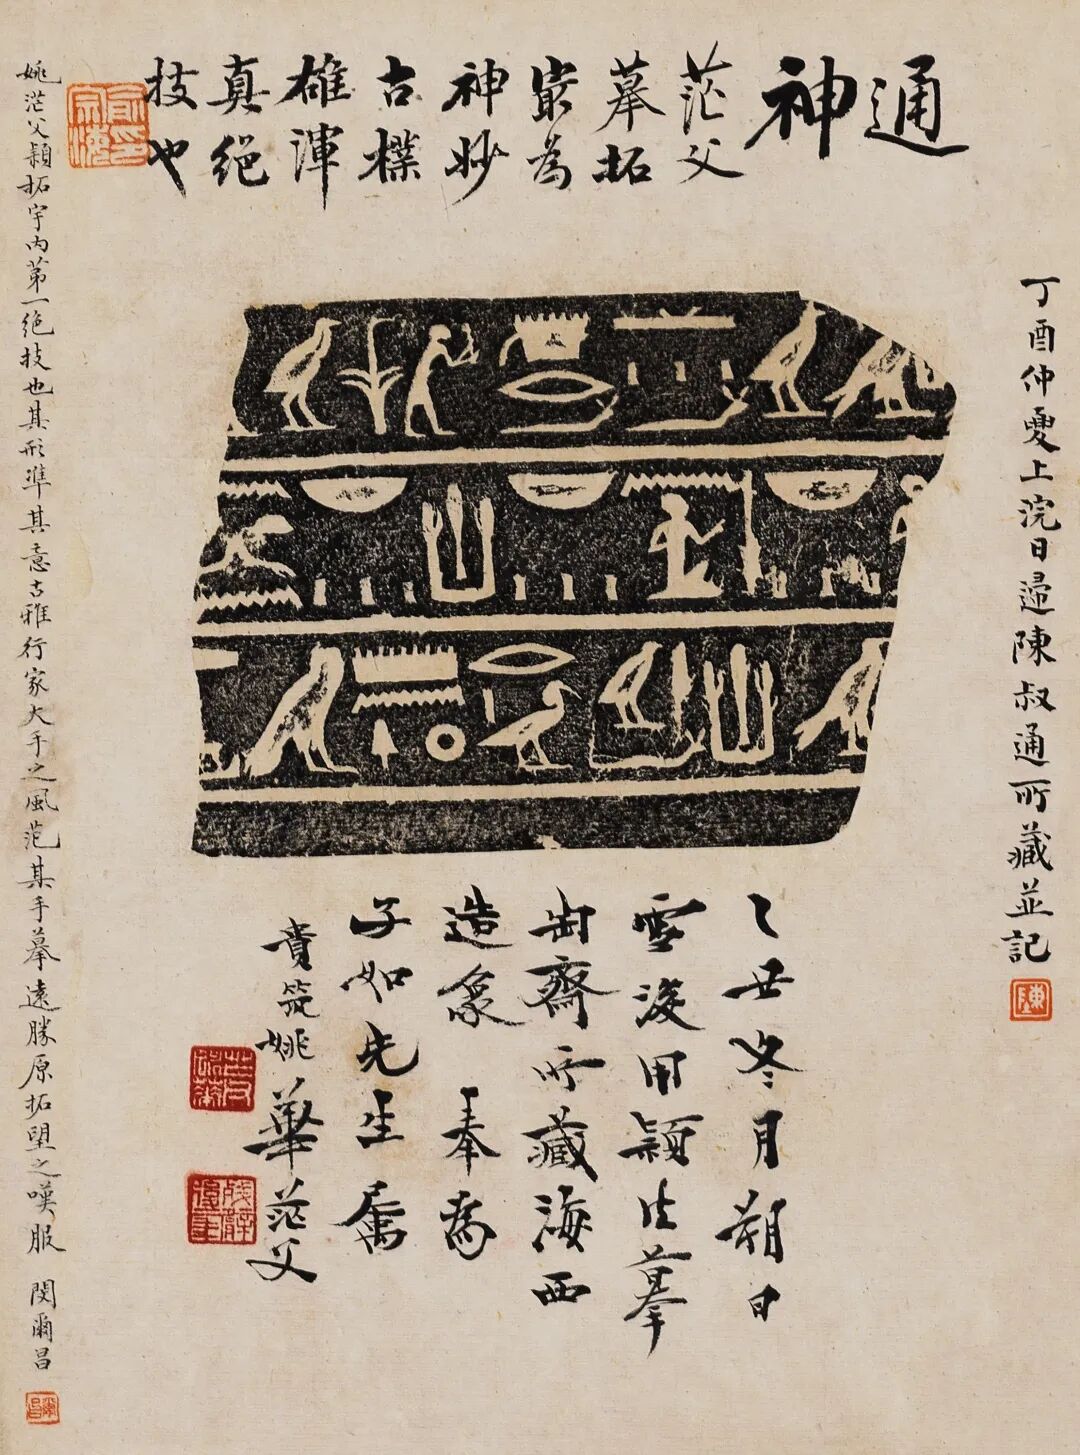 通神
茫父
摹拓
最為
神妙
古樸
雄渾
真絕
技也
丁酉仲夏上浣日歸陳叔通所藏並記
陳
乙丑冬月朔日
雪後用穎法摹
齋所藏海西
造象 奉為
子如先生屬
貴筑姚華茫父
姚茫父穎拓宇内第一絕技也其形準其意古雅行家大手之風范其手摹遠勝原拓望之嘆服 閔爾昌